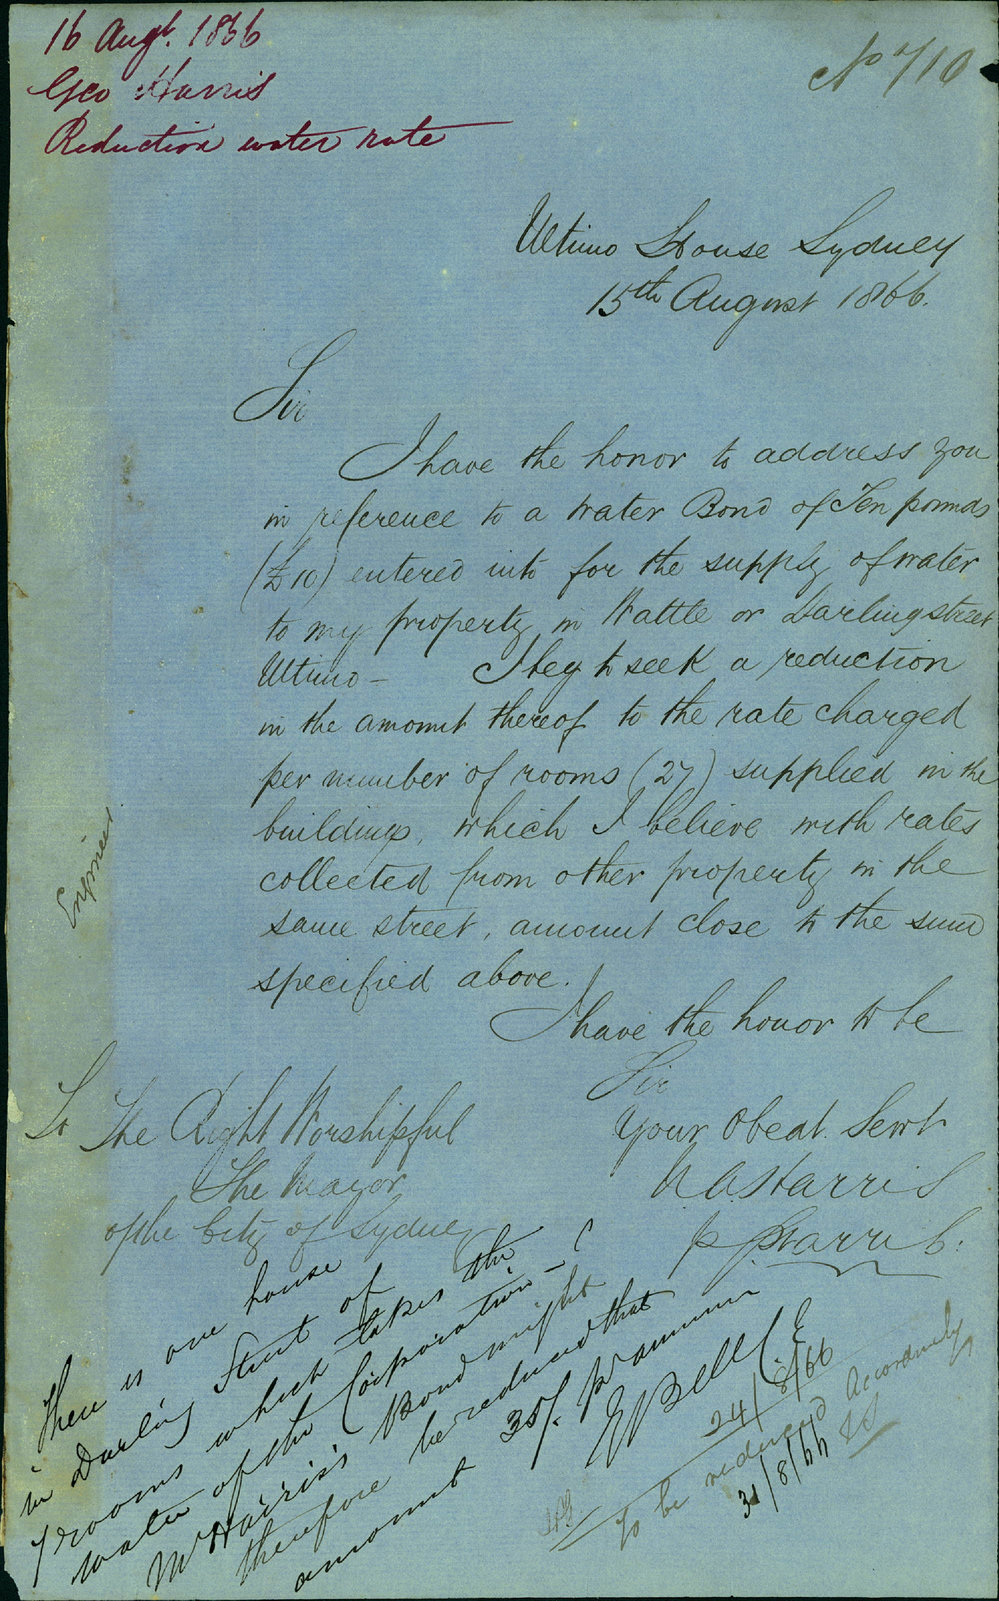 16 Augt. 1866
Geo Harris
Reduction water rate
No 710
Ultimo House Sydney
15th August 1866.
Sir
I have the honor to address you
in reference to a Water Bond of Ten pounds
(£10) entered into for the supply of water
to my property in Wattle or Darling street
Ultimo — I beg to seek a reduction
in the amount thereof to the rate charged
per number of rooms (27) supplied in the
buildings, which I believe with rates
collected from other property in the
same street, amount close to the sum
specified above.
I have the honor to be
Sir
Your Obedt. Servt
Harris
p Harris.
To The Right Worshipful
The Mayor
of the City of Sydney
Engineer
There is one house
in Darling Street of
7 rooms which takes the
water of the Corporation —
Mr Harris's Bond might
therefore be reduced that
amount 35/- p annum
E Bell C E
24/8/66
To be reduced accordingly
31/8/66